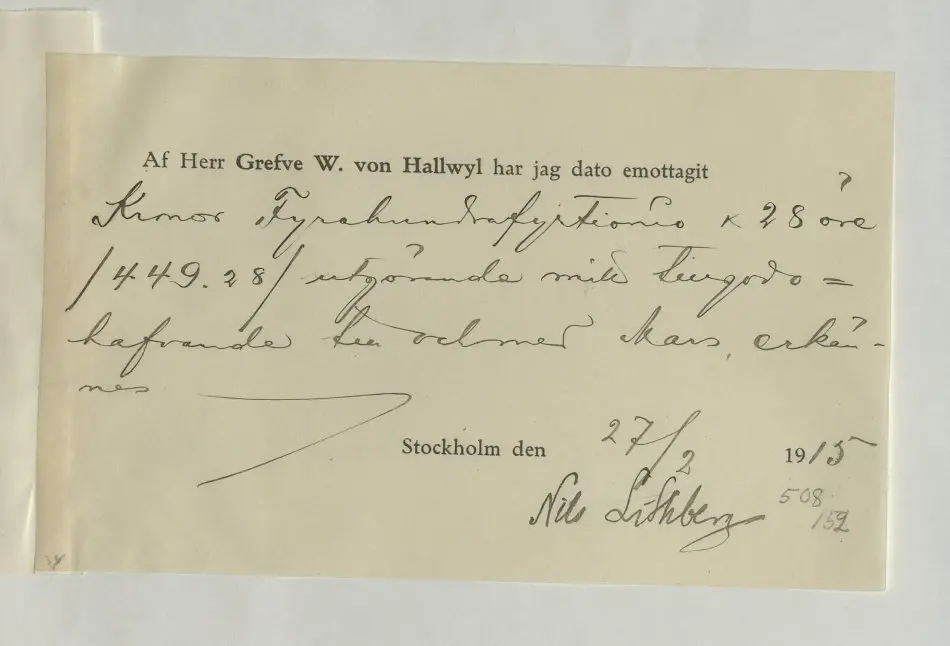 Af Herr Grefve W. von Hallwyl har jag dato emottagit
Kronor Fyrahundrafyrtionio & 28 öre
/449.28/ utgörande mitt tillgodo=
hafvande till och med Mars, erkän-
nes
Stockholm den 27/2 1915
Nils Lithberg
508
152